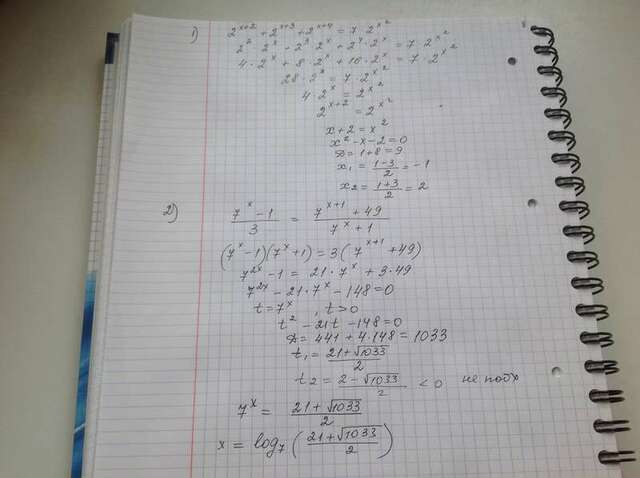 1) 2^{x+2} + 2^{x+3} + 2^{x+4} = 7 · 2^{x^2}
2^2 · 2^x - 2^3 · 2^x + 2^4 · 2^x = 7 · 2^{x^2}
4 · 2^x + 8 · 2^x + 16 · 2^x = 7 · 2^{x^2}
28 · 2^x = 7 · 2^{x^2}
4 · 2^x = 2^{x^2}
2^{x+2} = 2^{x^2}
x + 2 = x^2
x^2 - x - 2 = 0
D = 1 + 8 = 9
x_1 = (1-3)/2 = -1
x_2 = (1+3)/2 = 2
2) (7^x - 1)/3 = (7^{x+1} + 49)/(7^x + 1)
(7^x - 1)(7^x + 1) = 3(7^{x+1} + 49)
7^{2x} - 1 = 21 · 7^x + 3 · 49
7^{2x} - 21 · 7^x - 148 = 0
t = 7^x , t > 0
t^2 - 21t - 148 = 0
D = 441 + 4 · 148 = 1033
t_1 = (21 + √1033)/2
t_2 = (2 - √1033)/2 < 0 не подх
7^x = (21 + √1033)/2
x = log_7 ((21 + √1033)/2)